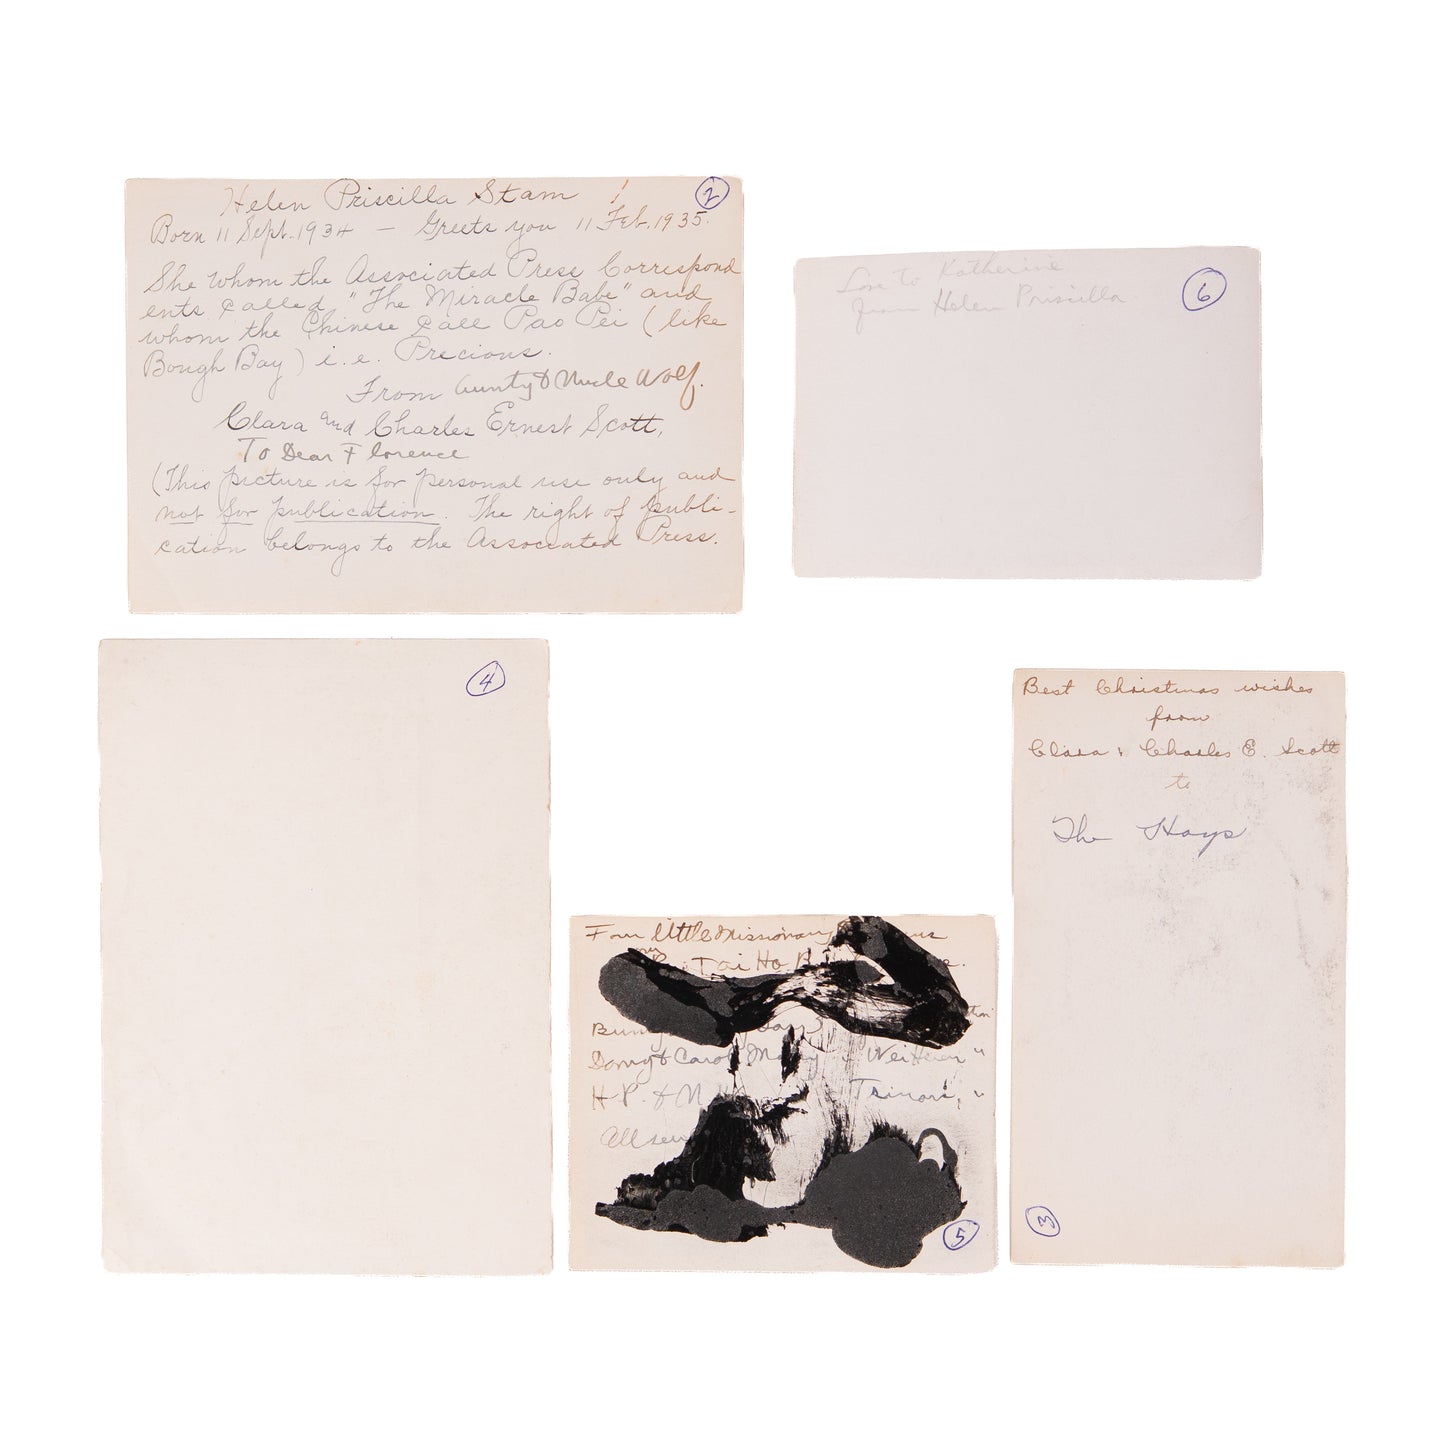 Helen Priscilla Stam !
2
Born 11 Sept. 1934 — Greets you 11 Feb. 1935.
She whom the Associated Press Correspond
ents called "The Miracle Babe" and
whom the Chinese call Pao Pei (like
Bough Bay) i.e. Precious.
From Aunty & Uncle Wolf.
Clara and Charles Ernest Scott,
To Dear Florence
(This picture is for personal use only and
not for publication. The right of publi-
cation belongs to the Associated Press.
Love To Katherine
from Helen Priscilla.
6
4
Best Christmas wishes
from
Clara & Charles E. Scott
to
The Hays
3
Four little Missionary
Tai Ho
Danny & Carol "
H.P. &
All
5